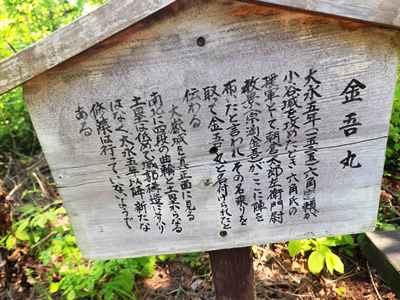 金吾丸
大永五年(一五二五)六角定頼が
小谷城を攻めたとき六角氏の
援軍として朝倉太郎左衛門尉
教景(宗滴金吾)がここに陣を
布いたと言われその名乗りを
取って金五丸と名付けられたと
伝わる
大嶽城を真正面に見る
南北に四段の曲輪と土塁からなる
土塁は極めて
ほなく大永五年以降新たな
修築は行っていないようで
ある